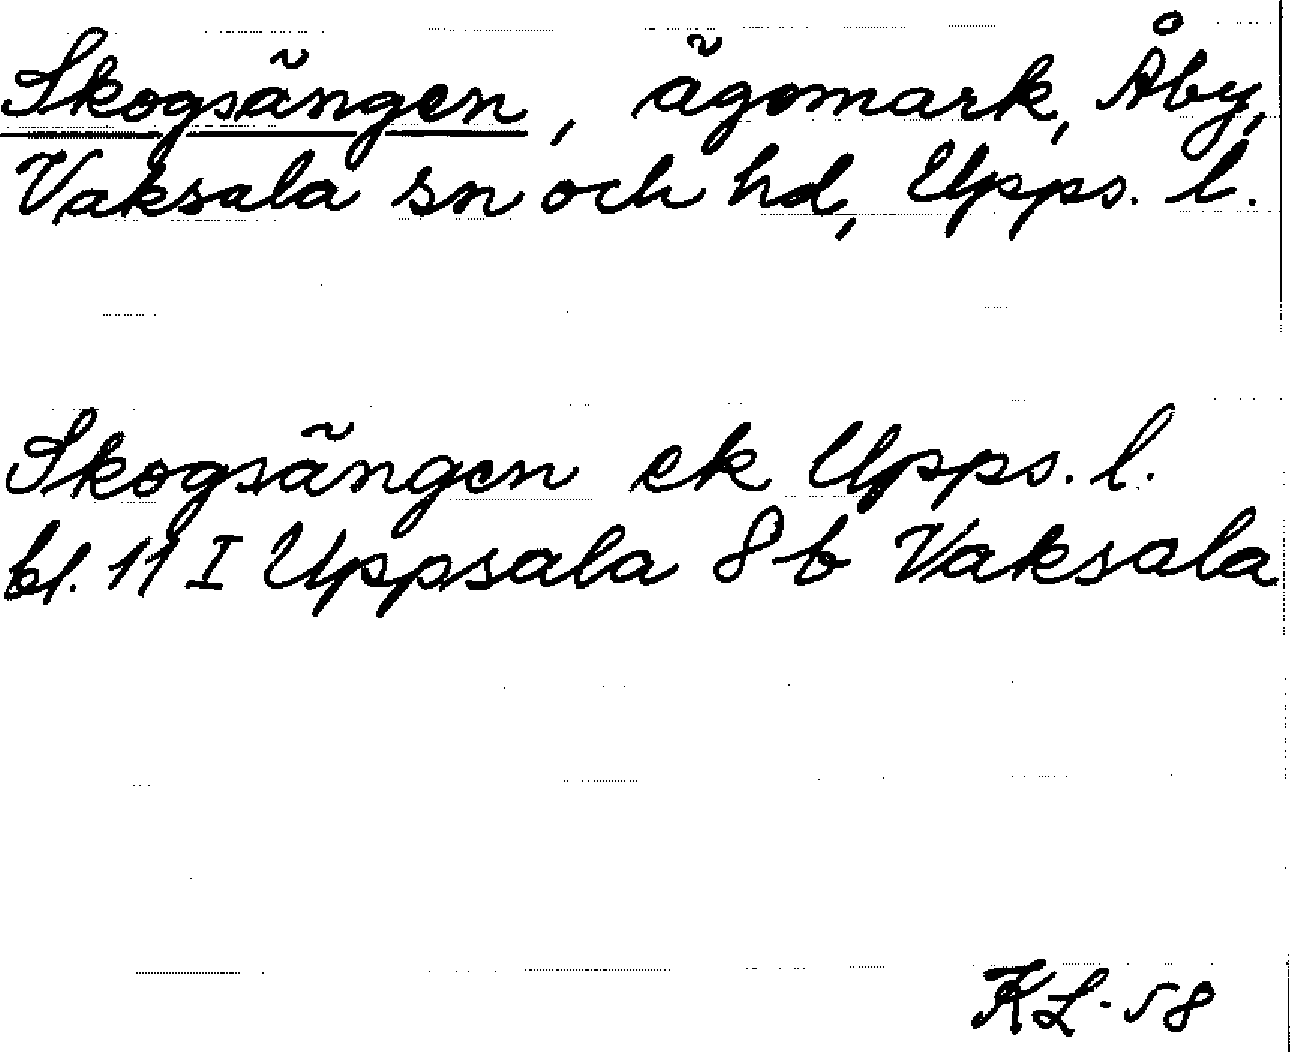 Skogsängen, ägomark, Åby,
Vaksala sn och hd, Upps. l.
Skogsängen ek Upps. l.
bl. 11 I Uppsala 8 b Vaksala
KL-58